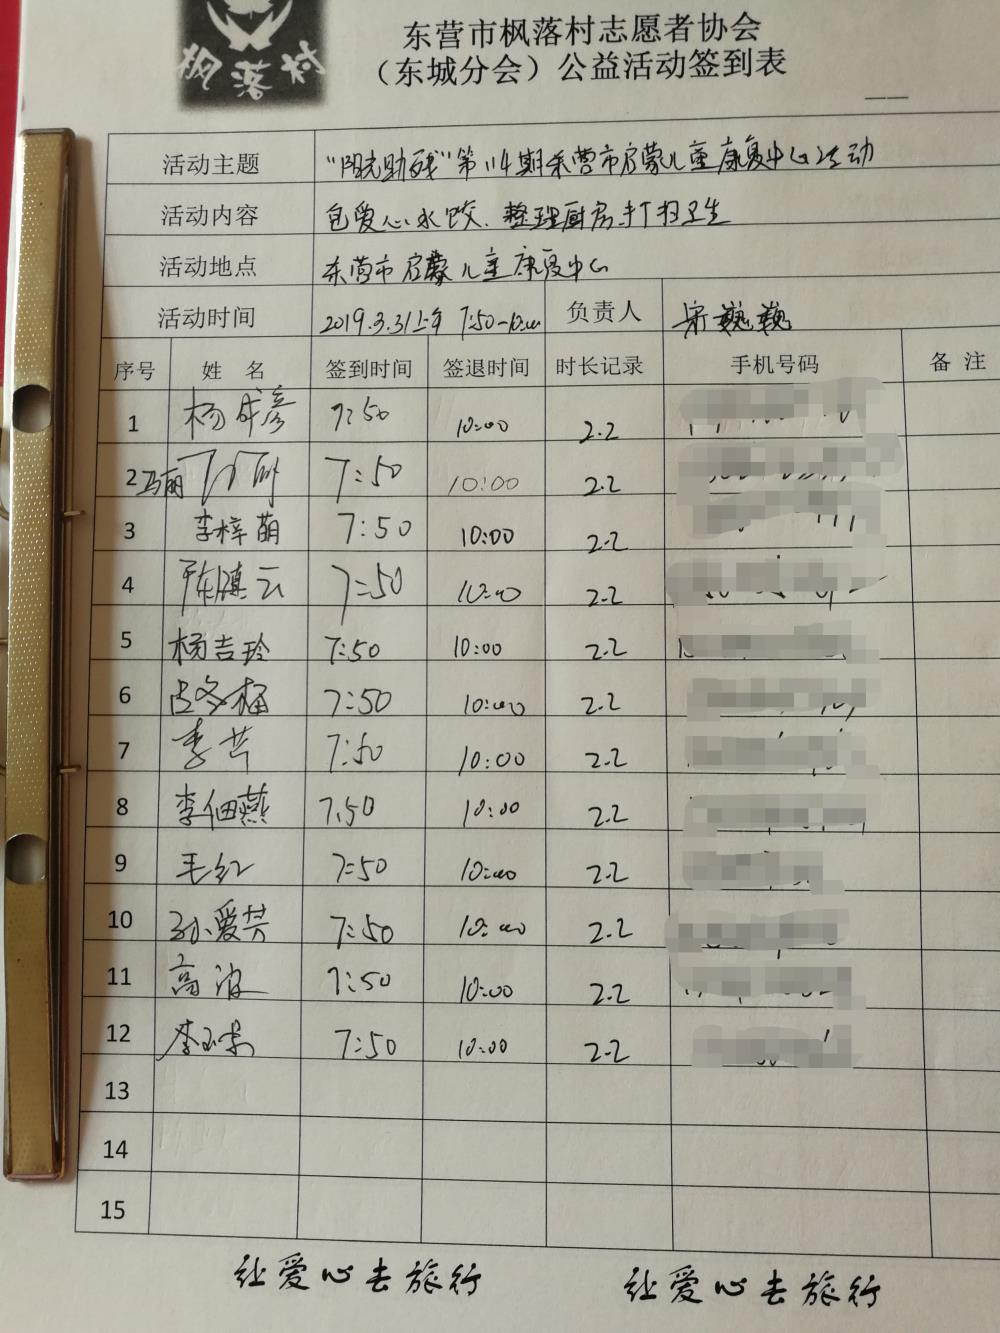 枫落村
东营市枫落村志愿者协会
（东城分会）公益活动签到表
活动主题 "阳光助残"第114期东营市启蒙儿童康复中心活动
活动内容 包爱心水饺、整理厨房、打扫卫生
活动地点 东营市启蒙儿童康复中心
活动时间 2019.3.31上午 7:50-10:00 负责人 宋巍巍
序号 姓 名 签到时间 签退时间 时长记录 手机号码 备 注
1 杨成彦 7:50 10:00 2.2
2 马丽 7:50 10:00 2.2
3 李梓萌 7:50 10:00 2.2
4 陈祺云 7:50 10:00 2.2
5 杨吉玲 7:50 10:00 2.2
6 7:50 10:00 2.2
7 李芹 7:50 10:00 2.2
8 李佃燕 7:50 10:00 2.2
9 毛红 7:50 10:00 2.2
10 孙爱芳 7:50 10:00 2.2
11 高波 7:50 10:00 2.2
12 7:50 10:00 2.2
13
14
15
让爱心去旅行 让爱心去旅行